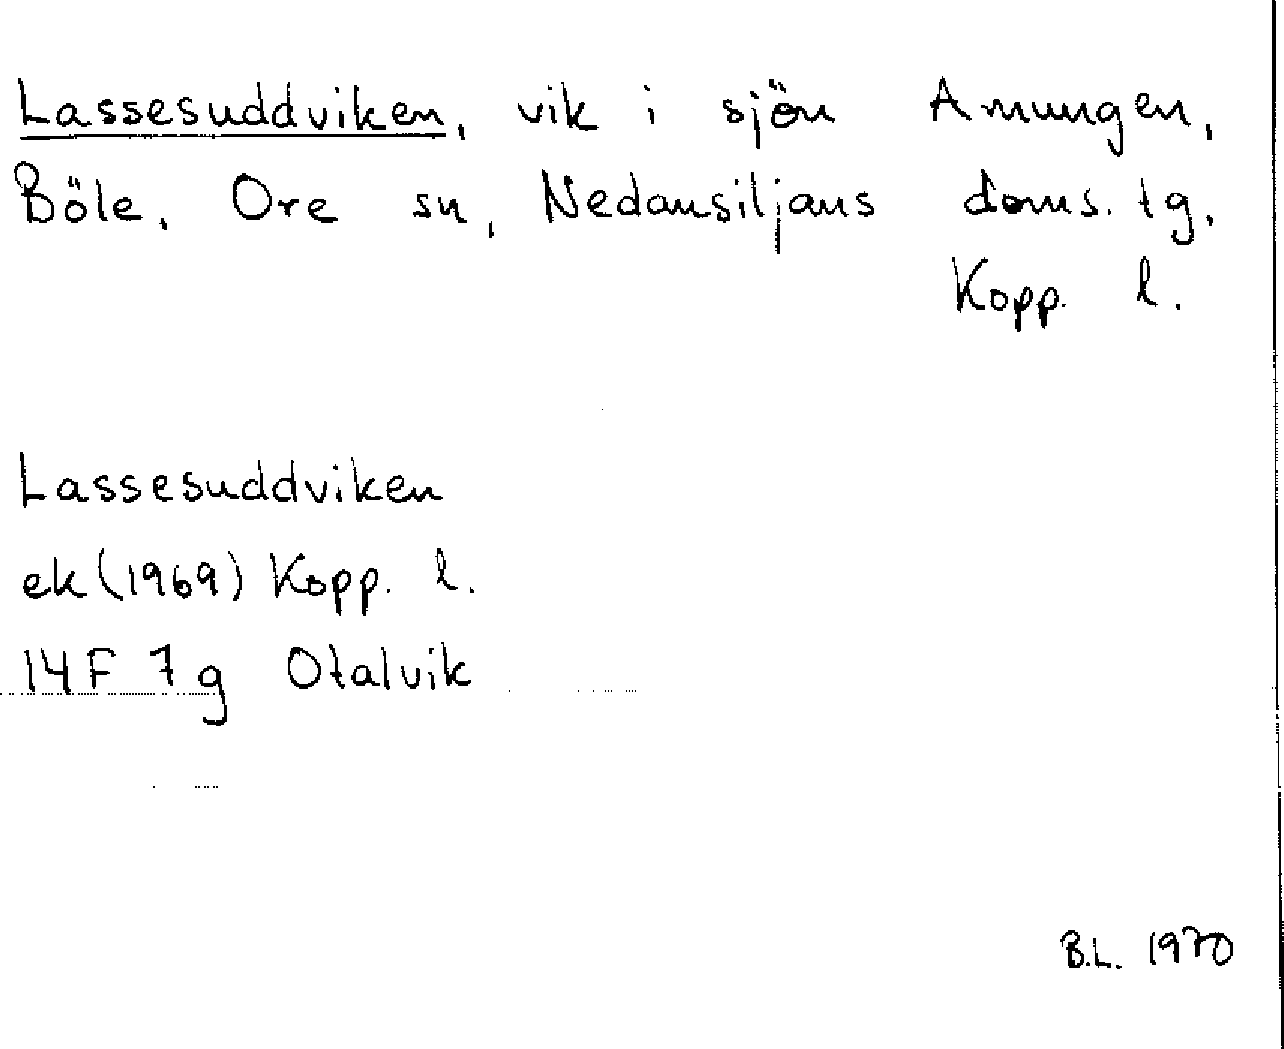 Lassesuddviken, vik i sjön Amungen,
Böle, Ore sn, Nedansiljans doms. tg,
Kopp. l.
Lassesuddviken
ek (1969) Kopp. l.
14F 7g Otalvik
B.L. 1970